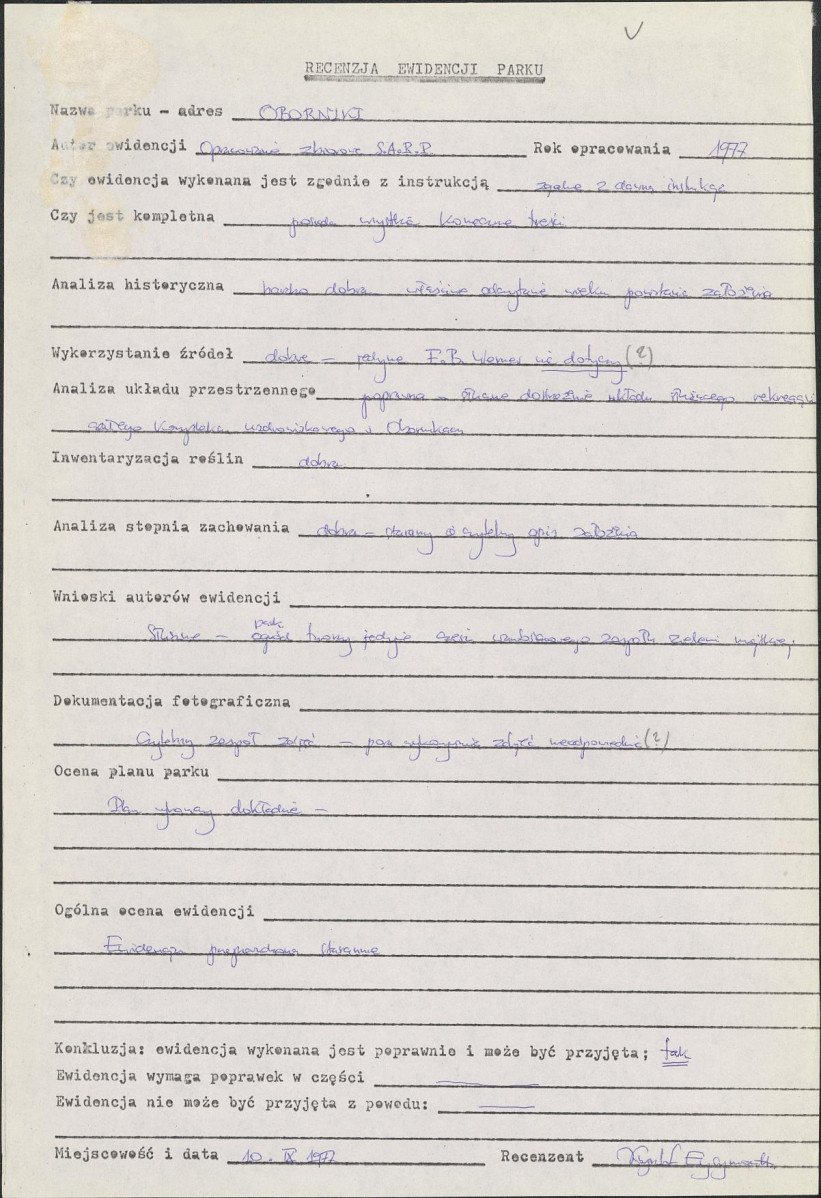 RECENZJA EWIDENCJI PARKU
Nazwa parku - adres OBORNIKI
Autor ewidencji Opracowanie zbiorowe S.A.R.P. Rok opracowania 1977
Czy ewidencja wykonana jest zgodnie z instrukcją zgodna z dawną instrukcją
Czy jest kompletna posiada wszystkie konieczne treści
Analiza historyczna bardzo dobra właściwe odczytanie wieku powstania założenia
Wykorzystanie źródeł dobre - jedynie F.B. Werner nie dotyczy (?)
Analiza układu przestrzennego poprawna - układu służącego rekreacji
całego uzdrowiskowego w Obornikach
Inwentaryzacja roślin dobra
Analiza stopnia zachowania dobra - staranny czytelny opis założenia
Wnioski autorów ewidencji
park
Słuszne - tworzy jedynie część zespołu zieleni
Dokumentacja fotograficzna
Czytelny zespół zdjęć - zdjęć (?)
Ocena planu parku
Plan wykonany dokładnie -
Ogólna ocena ewidencji
Ewidencja starannie
Konkluzja: ewidencja wykonana jest poprawnie i może być przyjęta; tak
Ewidencja wymaga poprawek w części
Ewidencja nie może być przyjęta z powodu:
Miejscowość i data 10. IX 1977 Recenzent